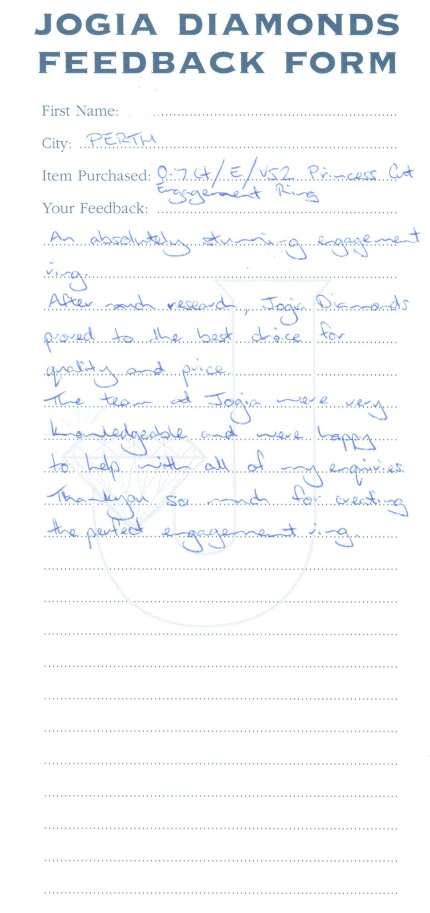 JOGIA DIAMONDS
FEEDBACK FORM
First Name:
City: PERTH
Item Purchased: 0.7ct/E/VS2 Princess Cut
Engagement Ring
Your Feedback:
An absolutely stunning engagement
ring.
After much research, Jogia Diamonds
proved to the best choice for
quality and price
The team at Jogia were very
knowledgeable and were happy
to help with all of my enquiries.
Thankyou so much for creating
the perfect engagement ring.